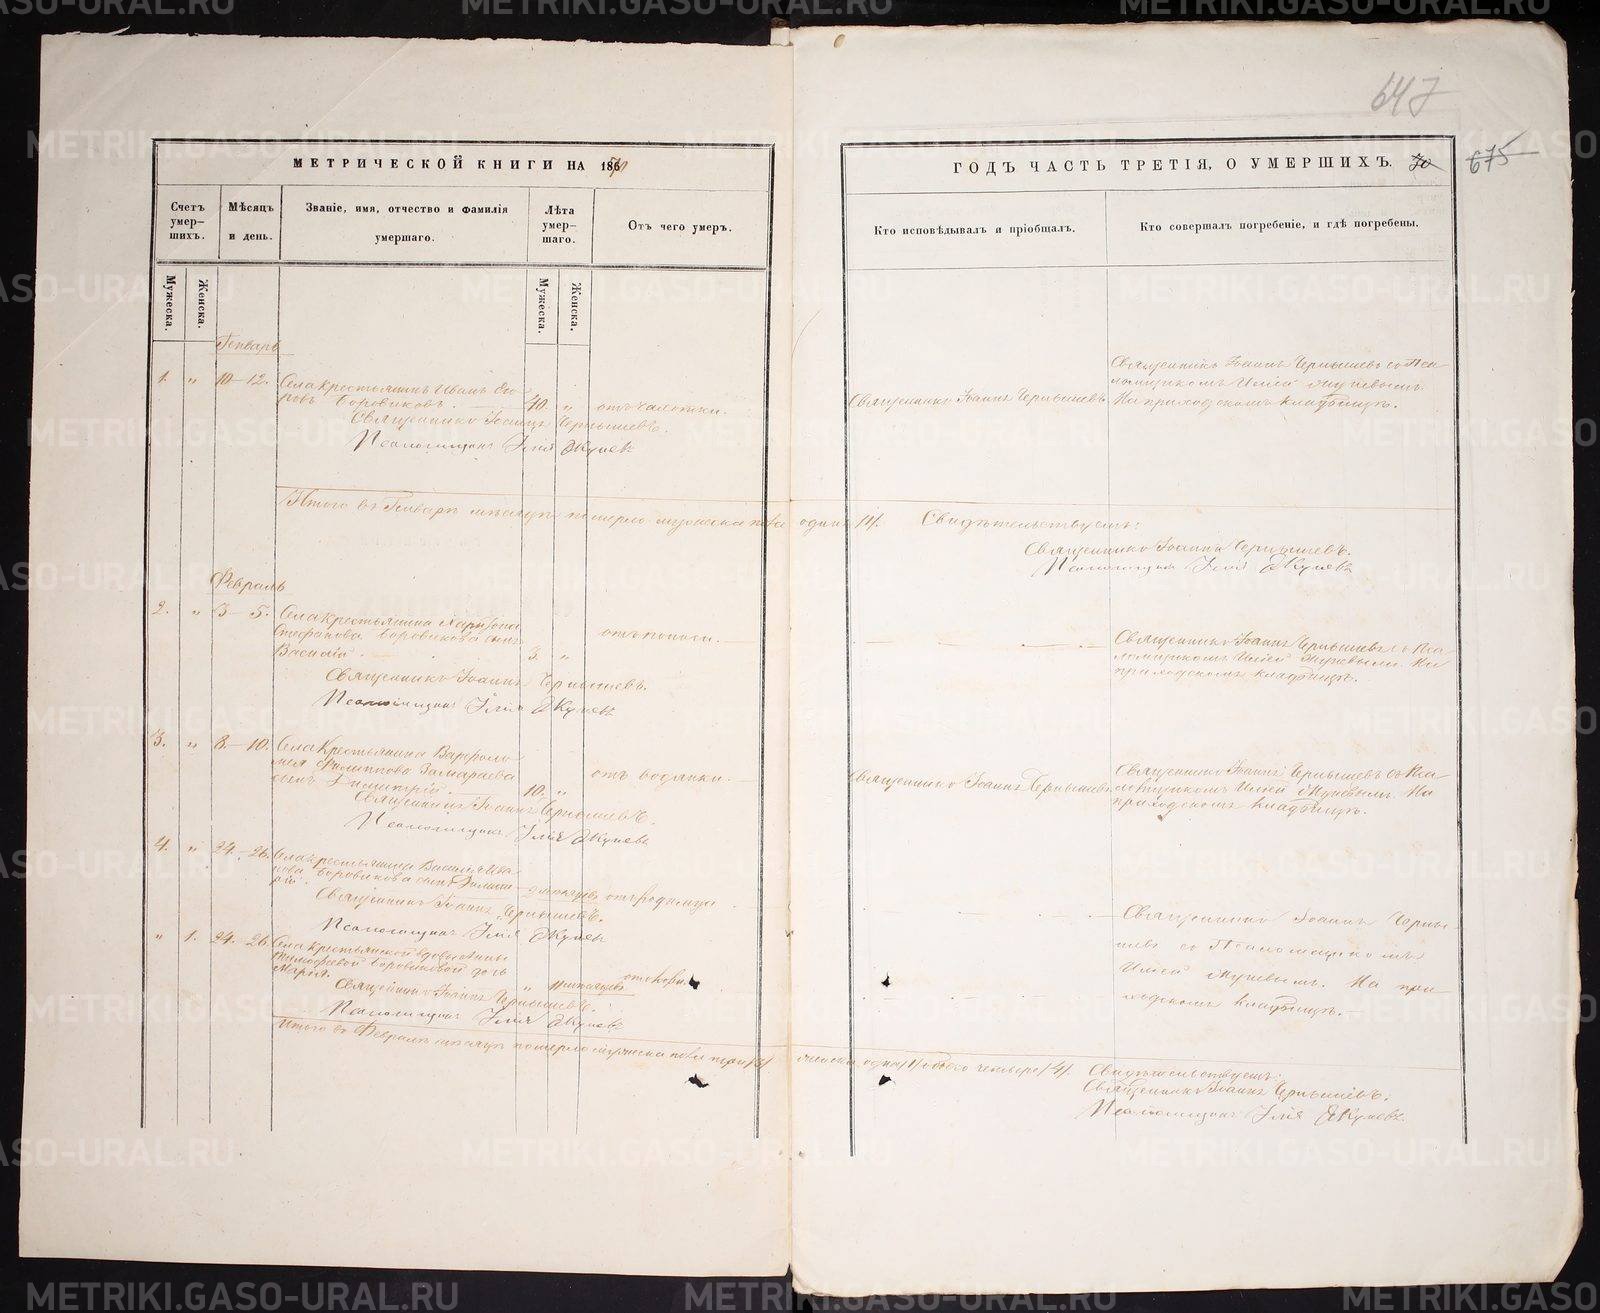 647
МЕТРИЧЕСКОЙ КНИГИ НА 1870
ГОДЪ ЧАСТЬ ТРЕТІЯ, О УМЕРШИХЪ. 70 675
Счетъ умер-шихъ.
Мѣсяцъ и день.
Званіе, имя, отчество и фамилія умершаго.
Лѣта умер-шаго.
Отъ чего умеръ.
Кто исповѣдывалъ и пріобщалъ.
Кто совершалъ погребеніе, и гдѣ погребены.
Мужеска.
Женска.
Мужеска.
Женска.
Генварь
1. " 10–12. Села крестьянинъ Иванъ Его-
ровъ Боровиковъ. 40. " отъ чахотки.
Священникъ Іоаннъ Чернышевъ.
Священникъ Іоаннъ Чернышевъ съ Пса-
ломщикомъ Иліей
На приходскомъ кладбищѣ.
Священникъ Іоаннъ Чернышевъ.
Псаломщикъ Илія
Итого въ Генварѣ мѣсяцѣ померло мужеска пола одинъ /1/. Свидѣтельствуемъ:
Священникъ Іоаннъ Чернышевъ.
Псаломщикъ Илія
Февраль
2. " 3–5. Села крестьянина Харитона
Стефанова Боровикова сынъ
Василій 3. " отъ поноса.
Священникъ Іоаннъ Чернышевъ съ Пса-
ломщикомъ Иліей На
приходскомъ кладбищѣ.
Священникъ Іоаннъ Чернышевъ.
Псаломщикъ Илія
3. " 8–10. Села Крестьянина Варфоло-
мея Филиппова Замараева
сынъ Димитрій 10. " отъ водянки.
Священникъ Іоаннъ Чернышевъ
Священникъ Іоаннъ Чернышев съ Пса-
ломщикомъ Иліей На
приходскомъ кладбищѣ.
Священникъ Іоаннъ Чернышевъ.
Псаломщикъ Илія
4. " 24–26. Села крестьянина Василія Ива-
нова Боровикова сынъ
отъ родимца
Священникъ Іоаннъ Чернышевъ.
Псаломщикъ Илія
Священникъ Іоаннъ Черны-
шевъ со Псаломщикомъ
Иліей На при-
ходскомъ кладбищѣ.
" 1. 24–26. Села крестьянской вдовы Анны
Тимофеевой Боровиковой дочь
Марія. " отъ кори.
Священникъ Іоаннъ Чернышевъ.
Псаломщикъ Илія
Итого въ Февралѣ мѣсяцѣ померло мужеска пола три /3/ женска одна /1/ обоего четверо /4/. Свидѣтельствуемъ:
Священникъ Іоаннъ Чернышевъ.
Псаломщикъ Илія
METRIKI.GASO-URAL.RU